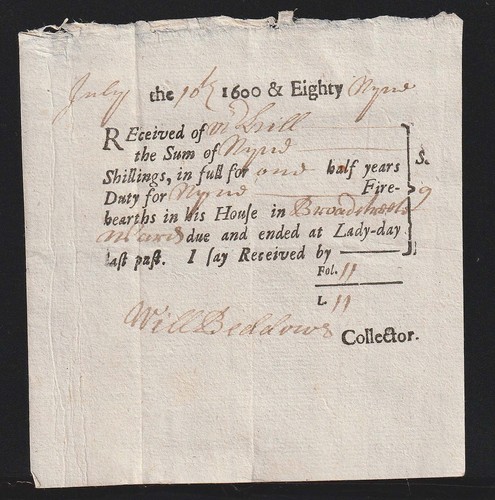 July the 10th 1600 & Eighty Nyne
REceived of Wid Hill
the Sum of Nyne S.
Shillings, in full for one half years
Duty for Nyne Fire- 9
hearths in his House in Broadstreete
Ward due and ended at Lady-day
last past. I say Received by
Fol. 11
L. 11
Will Beddows
Collector.